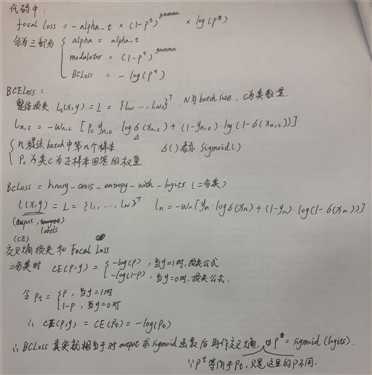 代码中:
focal loss = -alpha_t × (1-p^t)^gamma × log(p^t)
分为三部分 { alpha = alpha_t
modulator = (1-p^t)^gamma
BCLoss = -log(p^t)
BCELoss:
整体损失 L_c(x,y) = L = {l_{1,c} ... l_{N,c}}^T, N为batch size, C为类数量
l_{n,c} = -w_{n,c} [P_c y_{n,c} · log σ(x_{n,c}) + (1-y_{n,c}) · log(1-σ(x_{n,c}))]
{ n 是该batch中第n个样本 σ()表示sigmoid()
P_c 为类c为正样本回答的权重
BCLoss = binary_cross_entropy_with_logits (二分类)
l(x,y) = L = {l_1, ... l_N}^T l_n = -w_n[y_n · log σ(x_n) + (1-y_n) · log(1-σ(x_n))]
(output, labels)
(CE)
交叉熵损失和 Focal Loss
二分类时 CE(p,y) = { -log(p), 当y=1时,损失公式
-log(1-p), 当y=0时,损失公式
令 p_t = { p, 当y=1时
1-p, 当y=0时
∴ CE(p,y) = CE(p_t) = -log(p_t)
∴ BCLoss其实就相当于对output求sigmoid函数后再作交叉熵, p^t = sigmoid(logits).
∵ p^t 等同于 p_t, 只是这里的p不同.